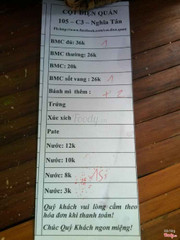 CỘT ĐIỆN QUÁN
105 - C3 - Nghĩa Tân
BMC đủ: 36k 1
BMC thường: 26k
BMC: 20k
BMC sốt vang: 26k 1
Bánh mì thêm:
Trứng
Xúc xích
Pate
Nước: 12k
Nước: 10k
Nước: 8k
Nước: 3k
Quý khách vui lòng cầm theo
hóa đơn khi thanh toán!
Chúc Quý Khách ngon miệng!